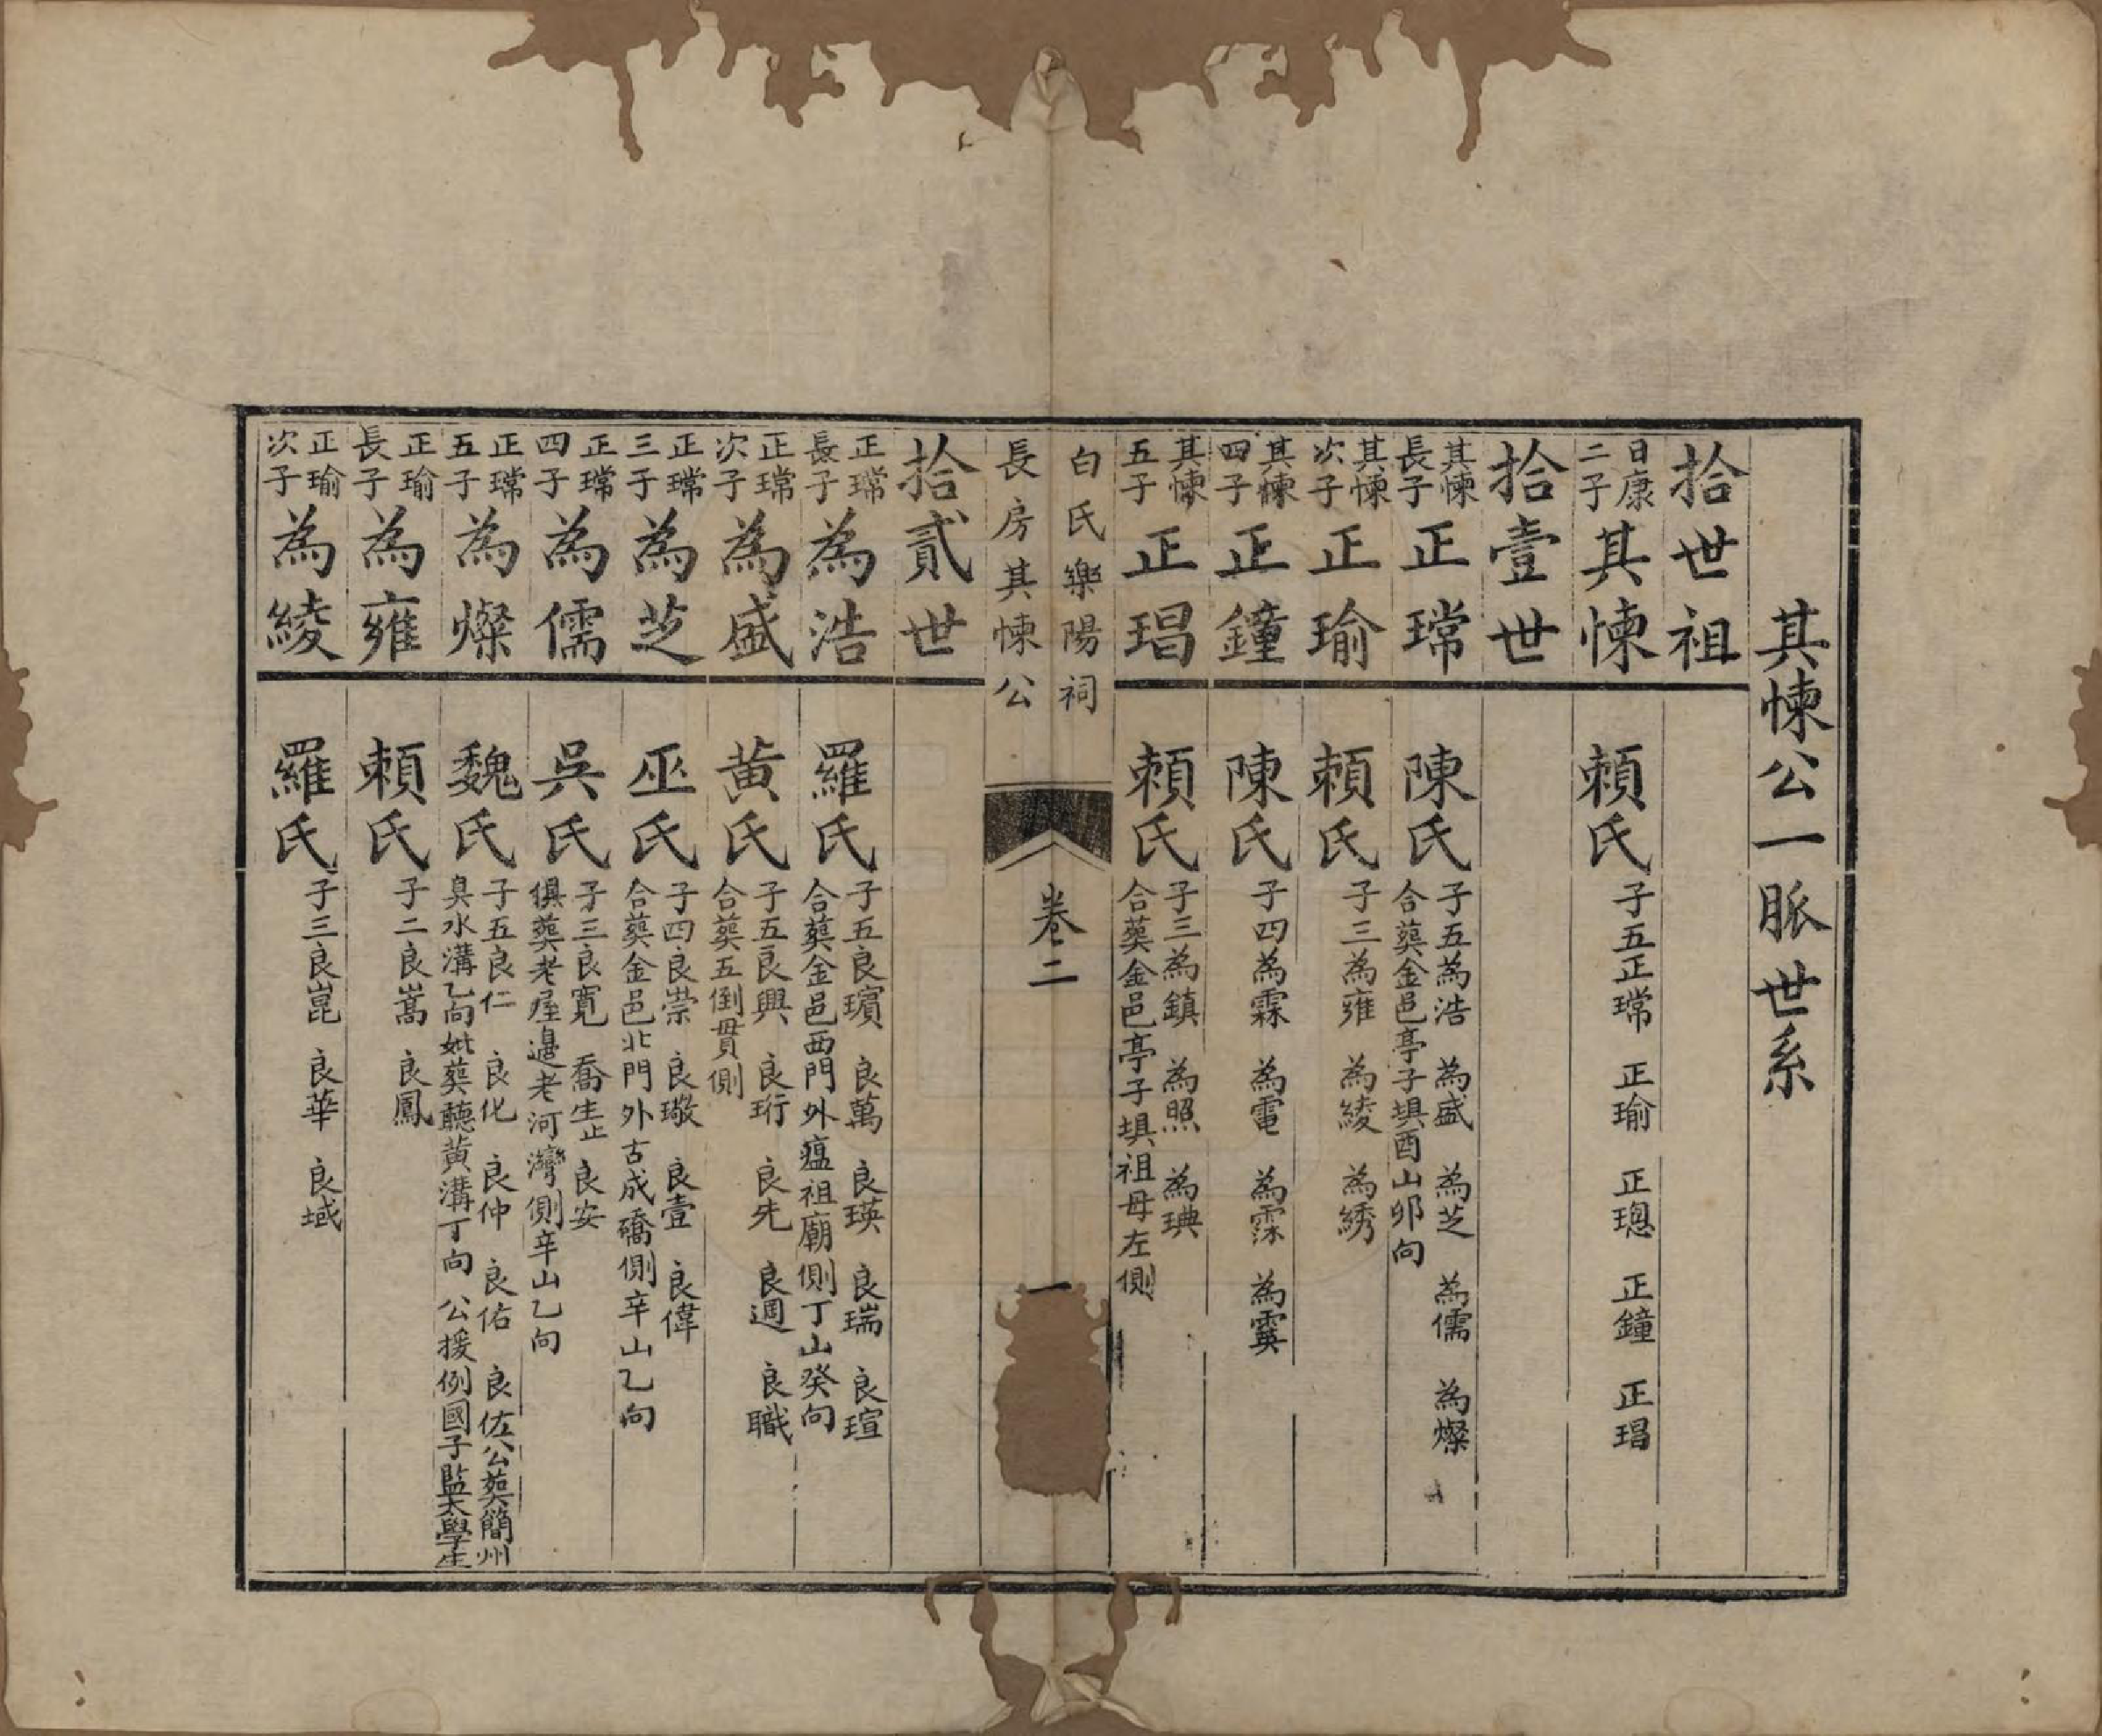 其悚公一脈世系
拾世祖
日康二子 其悚 賴氏 子五正瑺 正瑜 正璁 正鐘 正琩
拾壹世
其悚長子 正瑺 陳氏 子五為浩 為盛 為芝 為儒 為燦
合葬金邑亭子埧酉山卯向
其悚次子 正瑜 賴氏 子三為雍 為綾 為綉
其悚四子 正鐘 陳氏 子四為霖 為電 為霂 為霙
其悚五子 正琩 賴氏 子三為鎮 為照 為琠
合葬金邑亭子埧祖母左側
白氏樂陽祠
長房其悚公
卷二
一
拾貳世
正瑺長子 為浩 羅氏 子五良璸 良萬 良瑛 良瑞 良瑄
合葬金邑西門外瘟祖廟側丁山癸向
正瑺次子 為盛 黃氏 子五良興 良珩 良先 良週 良職
合葬五倒貫側
正瑺三子 為芝 巫氏 子四良崇 良璥 良壹 良偉
合葬金邑北門外古成礄側辛山乙向
正瑺四子 為儒 吳氏 子三良寬 喬生止 良安
俱葬老屋邊老河灣側辛山乙向
正瑺五子 為燦 魏氏 子五良仁 良化 良仲 良佑 良佐公葬簡州
臭水溝乙向妣葬聽黃溝丁向 公援例國子監太學生
正瑜長子 為雍 賴氏 子二良嵩 良鳳
正瑜次子 為綾 羅氏 子三良崑 良華 良域